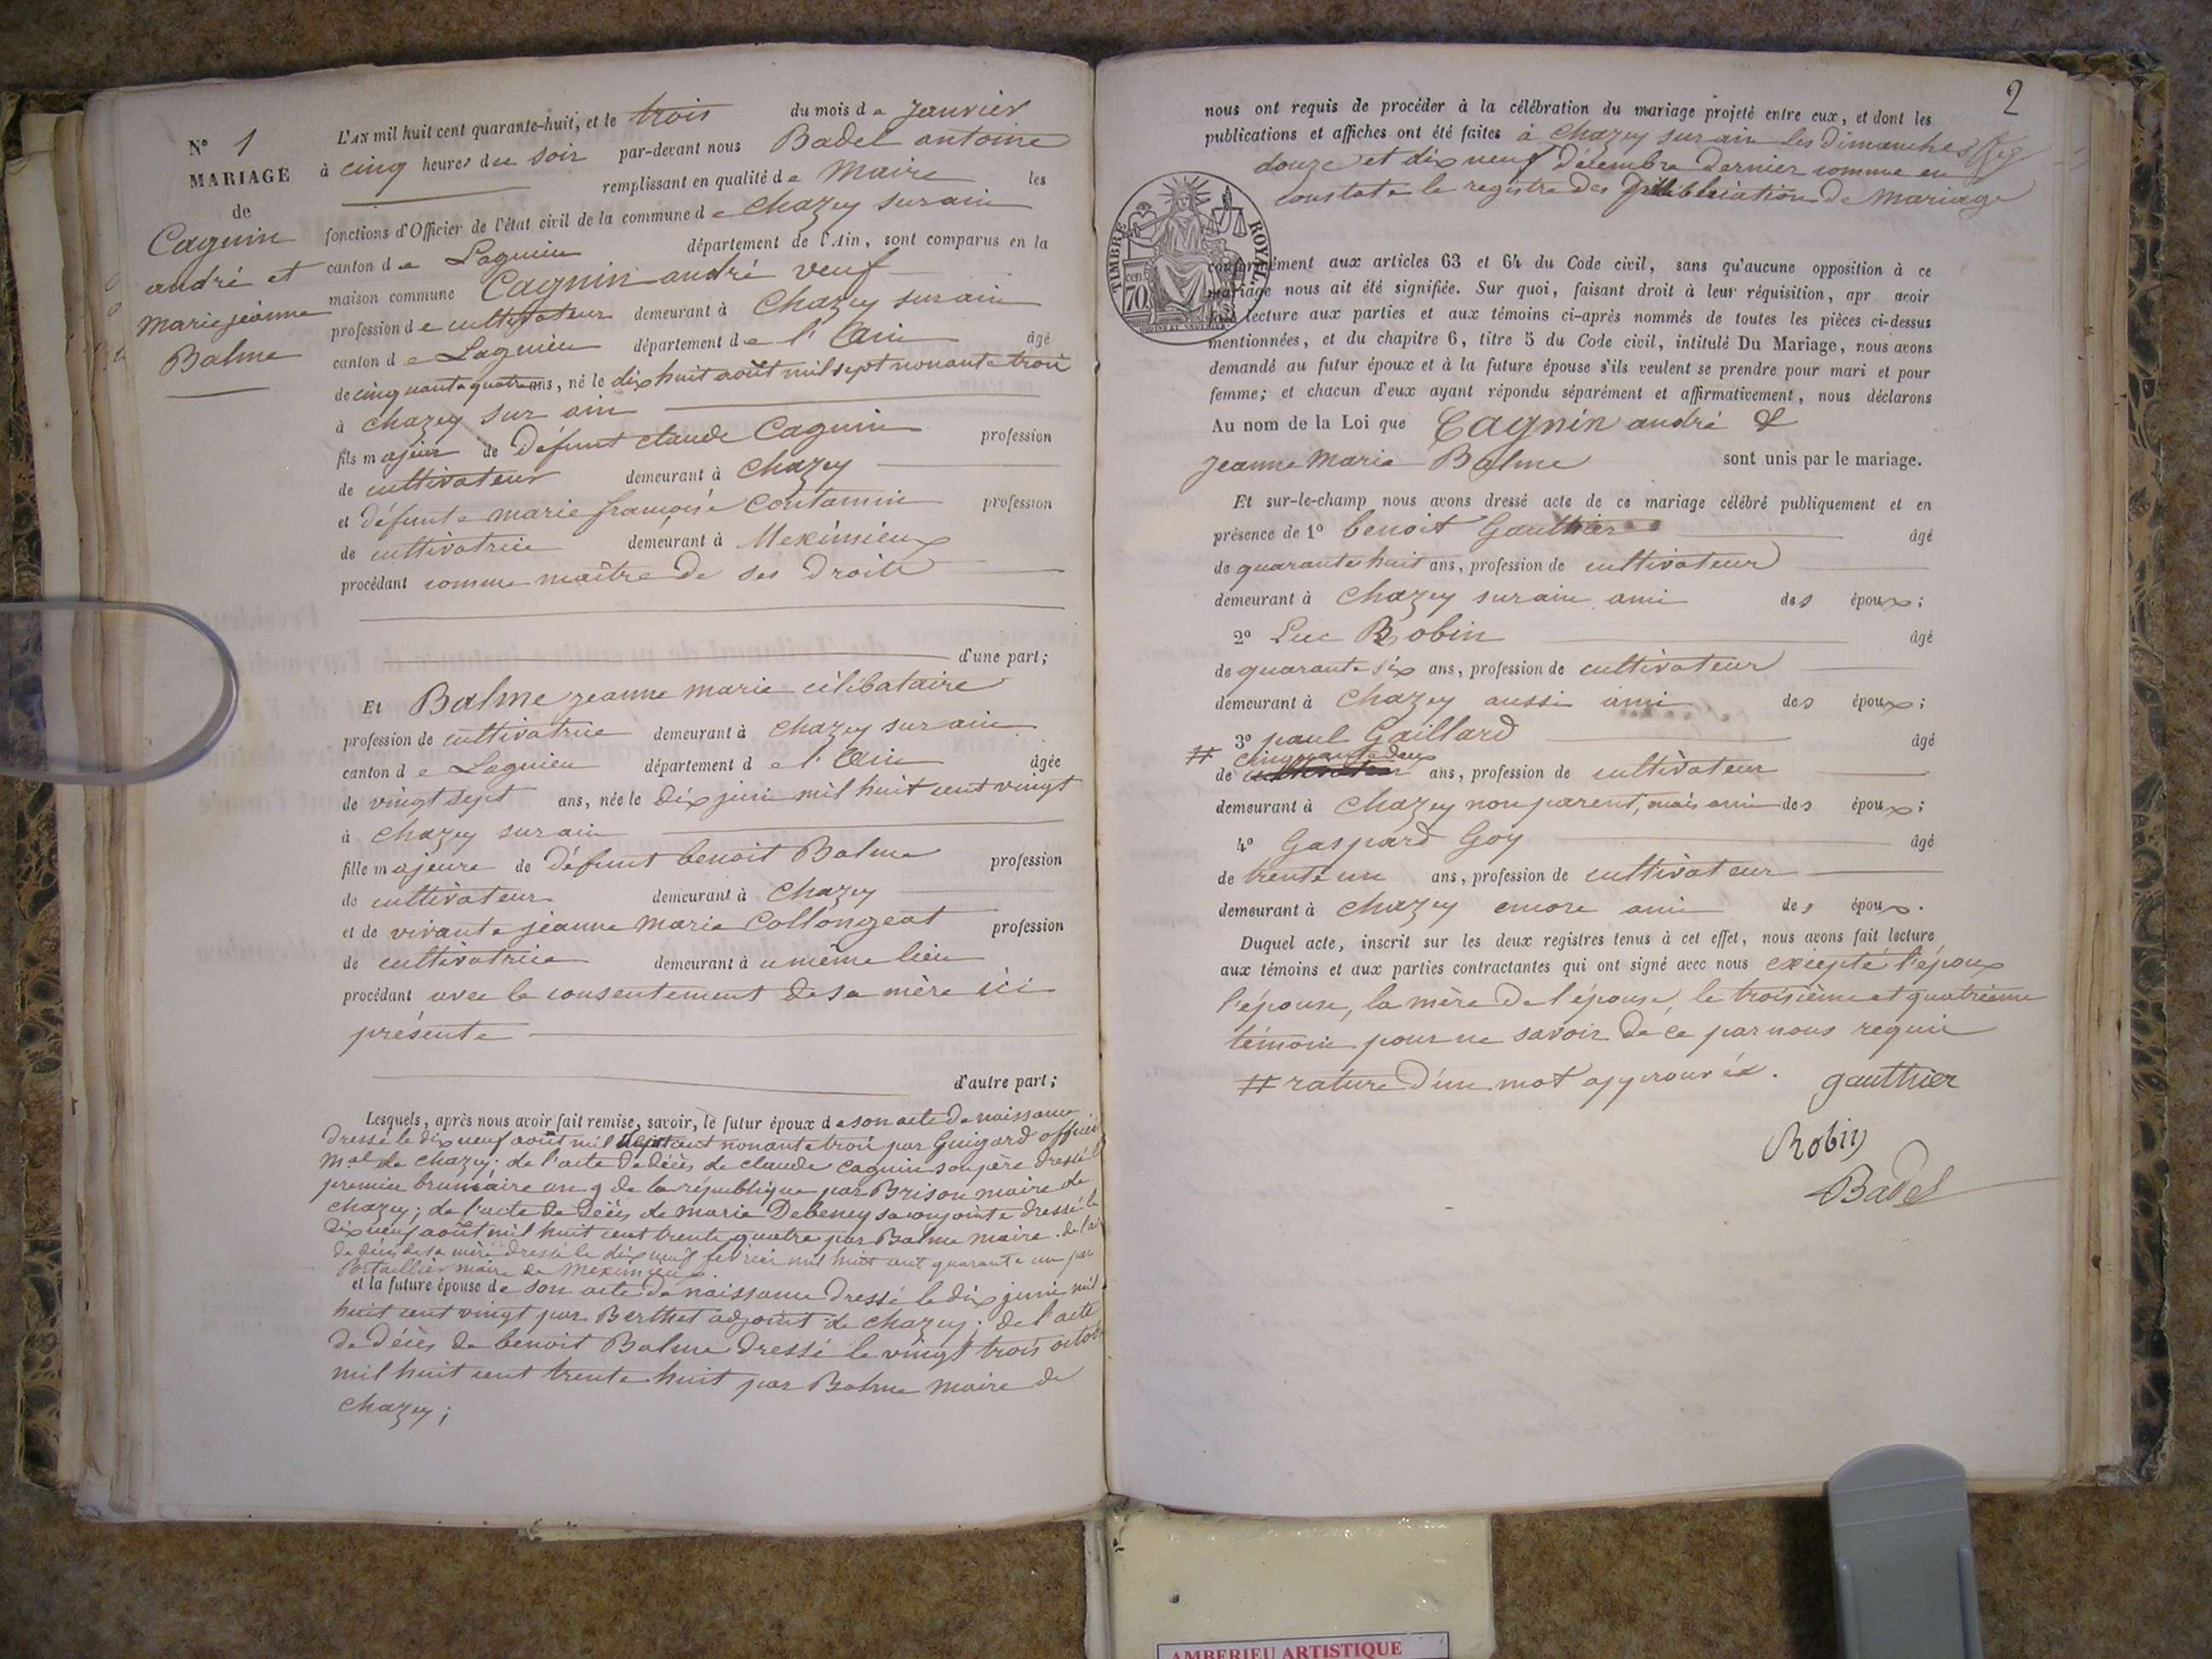 N° 1
MARIAGE
de
Cagnin
andré et
Marie jéanne
Balme
L'AN mil huit cent quarante-huit, et le trois du mois de Janvier
à cinq heures du soir par-devant nous Badel antoine
remplissant en qualité de Maire les
fonctions d'Officier de l'état civil de la commune de Chazey sur ain
canton de Lagnieu département de l'Ain, sont comparus en la
maison commune Cagnin andré veuf
profession de cultivateur demeurant à Chazey sur ain
canton de Lagnieu département de l'Ain âgé
de cinquante quatre ans, né le dix huit août mil sept nonante trois
à chazey sur ain
fils majeur de défunt claude Cagnin profession
de cultivateur demeurant à Chazey
et défunte marie françoise Contamin profession
de cultivatrice demeurant à Meximieux
procédant comme maître de ses droits
d'une part;
Et Balme jeanne marie célibataire
profession de cultivatrice demeurant à chazey sur ain
canton de Lagnieu département de l'Ain âgée
de vingt sept ans, née le dix juin mil huit cent vingt
à chazey sur ain
fille majeure de défunt benoit Balme profession
de cultivateur demeurant à Chazey
et de vivante jéanne Marie Collongeat profession
de cultivatrice demeurant à u même lieu
procédant avec le consentement de sa mère ici
présente
d'autre part;
Lesquels, après nous avoir fait remise, savoir, le futur époux de son acte de naissance
dressé le dix neuf août mil sept cent nonante trois par Guigard officier
m.al de chazey; de l'acte de décès de claude Cagnin son père dressé le
premier brumaire an 9 de la république par Brison maire de
chazey; de l'acte de décès de marie Debeney sa conjointe dressé le
dix neuf août mil huit cent trente quatre par Balme maire. de l'acte
de décès de sa mère dressé le dix neuf février mil huit cent quarante un par
Portallier maire de Meximieux.
et la future épouse de son acte de naissance dressé le dix juin mil
huit cent vingt par Berthet adjoint de chazey; de l'acte
de décès de benoit Balme dressé le vingt trois octob
mil huit cent trente huit par Balme Maire de
Chazey;
2
nous ont requis de procéder à la célébration du mariage projeté entre eux, et dont les
publications et affiches ont été faites à Chazey sur ain les dimanches
douze et dix neuf décembre dernier comme en
constate le registre des publication de Mariage
TIMBRE ROYAL
70 cen
conformément aux articles 63 et 64 du Code civil, sans qu'aucune opposition à ce
mariage nous ait été signifiée. Sur quoi, faisant droit à leur réquisition, apr avoir
lecture aux parties et aux témoins ci-après nommés de toutes les pièces ci-dessus
mentionnées, et du chapitre 6, titre 5 du Code civil, intitulé Du Mariage, nous avons
demandé au futur époux et à la future épouse s'ils veulent se prendre pour mari et pour
femme; et chacun d'eux ayant répondu séparément et affirmativement, nous déclarons
Au nom de la Loi que Cagnin andré &
Jeanne Marie Balme sont unis par le mariage.
Et sur-le-champ nous avons dressé acte de ce mariage célébré publiquement et en
présence de 1° benoit Gauthier âgé
de quarante huit ans, profession de cultivateur
demeurant à Chazey sur ain ami des époux;
2° Luc Robin âgé
de quarante six ans, profession de cultivateur
demeurant à Chazey aussi ami des époux;
3° paul Gaillard âgé
# cinquante deux
de ans, profession de cultivateur
demeurant à Chazey non parent, mais ami des époux;
4° Gaspard Goy âgé
de trente un ans, profession de cultivateur
demeurant à Chazey encore ami des époux.
Duquel acte, inscrit sur les deux registres tenus à cet effet, nous avons fait lecture
aux témoins et aux parties contractantes qui ont signé avec nous excepté l'époux
l'épouse, la mère de l'épouse, le troisième et quatrième
témoin pour ne savoir de ce par nous requis
# rature d'un mot approuvée. gauthier
Robin
Badel
AMBERIEU ARTISTIQUE